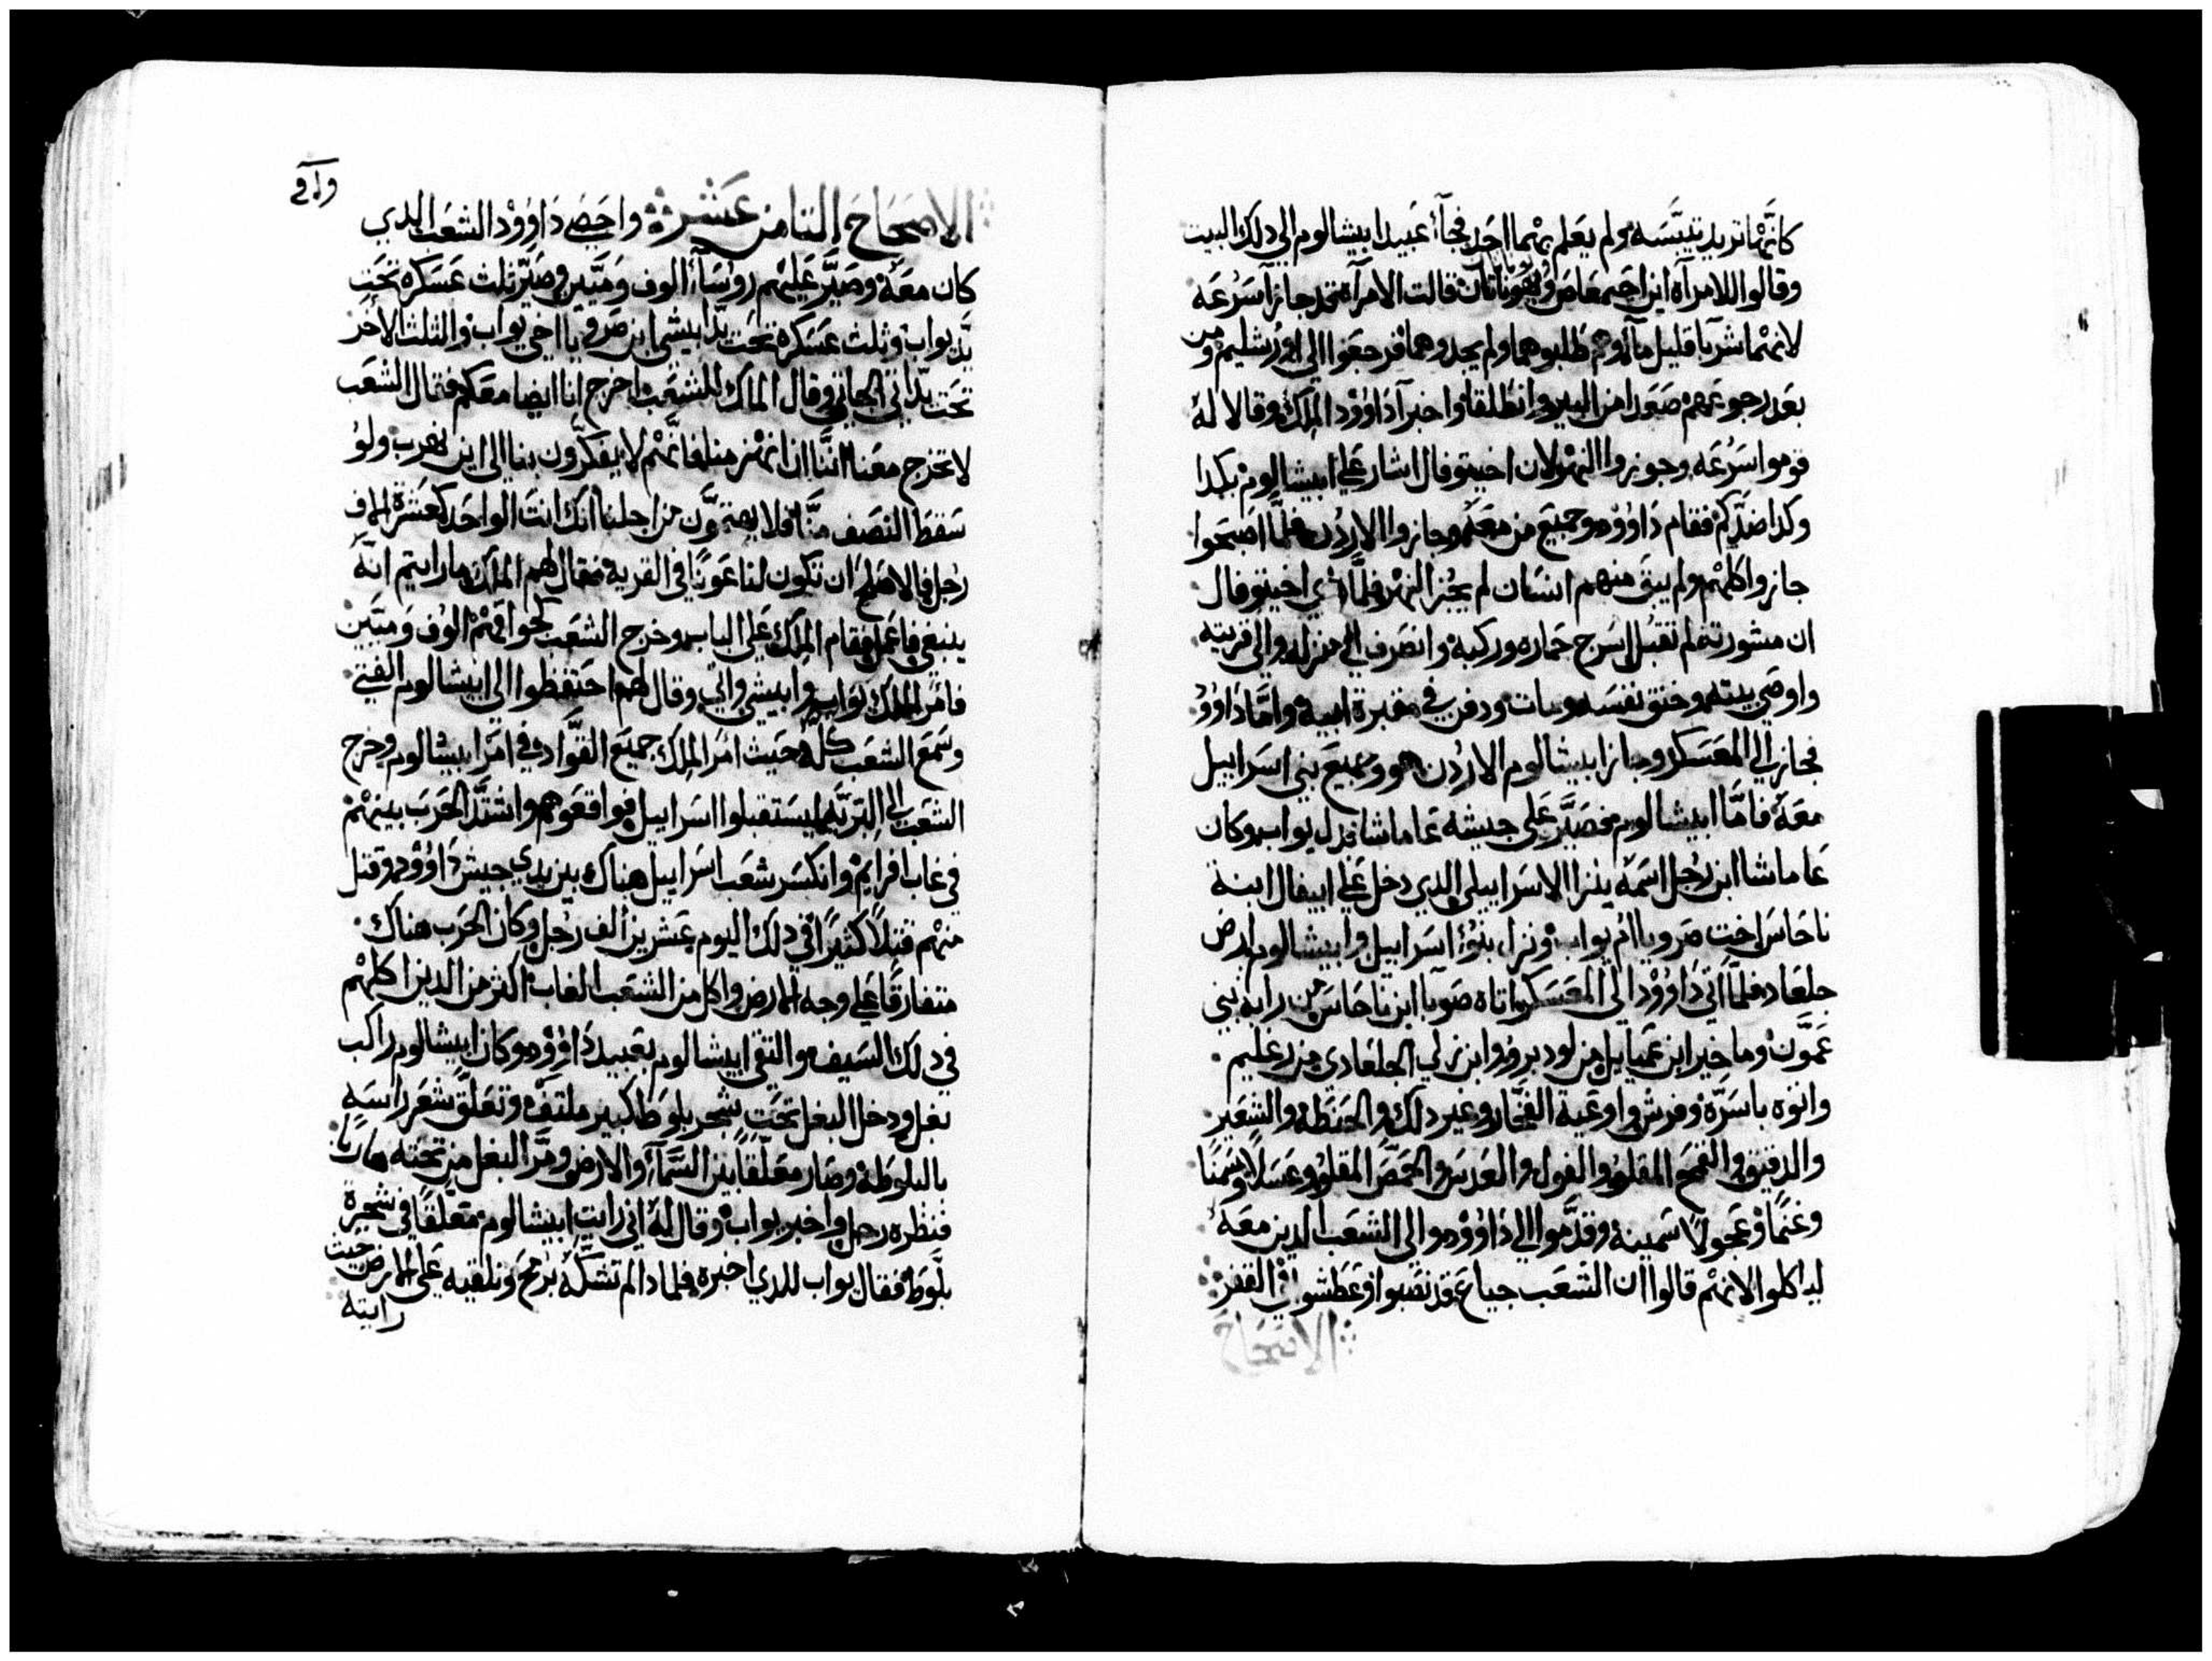 كانَّها تريد تيبّسه ولم يعلم بهما احد فجآء عبيد ابيشالوم الي دلك البيت
وقالوا للامرآه اين اخيمعاص ويهوناتان قالت الامرآه قد جازا سرعه
لانهما شربا قليل مآء وهم طلبوهما ولم يجدوهما فرجعوا الي اورشليم ومن
بعد رجوعهم صعدا من البير وانطلقا واخبرآ داوود الملك وقالا له
قوموا سرعه وجوزوا النهر لان اخيتوفال اشار علي ابيشالوم بكدا
وكدا ضدّكم فقام داوود وجميع من معه وجازوا الاردن فلمَّا اصبحوا
جازوا كلهم ولم يبق منهم انسان لم يجز النهر فلمَّا راي اخيتوفال
ان مشورته لم تقبل اسرج حماره وركبه وانصرف الي منزله والي قريته
واوصي بيته وخنق نفسه ومات ودفن في مقبرة ابيه وامَّا داوود
فجاز الي المعسكر وجاز ابيشالوم الاردن هو وجميع بني اسراييل
معه فامَّا ابيشالوم فصيَّر علي جيشه عاماشا بدل يواب وكان
عاماشا ابن رجل اسمه يترا الاسراييلي الدي دخل علي ابيغال ابنة
ناحاس اخت صرويا ام يواب ونزل بنوُ اسراييل وابيشالوم ارض
جلعاد فلمَّا اتي داوود الي المعسكر اتاه صوبا ابن ناحاس من رابه بني
عمّون وماخير ابن عميايل من لودبر وابرزلي الجلعادي من رعليم
واتوه باسرّة وفرش واوعية الفخّار وغير دلك والحنطه والشعير
والدقيق والقمح المقلو والفول والعدس والحمّص المقلو وعسلاً وسمنًا
وغنمًا وعجولاً سمينه وقدّموا الي داوود والي الشعب الدين معه
لياكلوا لانهم قالوا ان الشعب جياع قد نصبوا وعطشوا في القفر
الاصحاح
الاصحاح التامن عشر واحصي داوود الشعب الدي
كان معه وصيَّر عليهم روُسآء الوف وميَّين وصيّر ثلث عسكره تحت
يدّ يواب وثلث عسكره تحت يدّ ابيشي ابن صرويا اخي يواب والثلث الاخر
تحت يدّ اتي الجاتي وقال الملك للشعب اخرج انا ايضا معكم فقال الشعب
لا تخرج معنا اننَّا ان انهزمنا فانَّهم لا يفكّرون بنا الي اين نهرب ولو
سقط النصف منَّا فلا يهتموّن من اجلنا انك انت الواحد كعشرة الاف
رجل فالاصلح ان تكون لنا عونًا في القرية فقال لهم الملك ما رايتم انَّه
ينبغي فاعمل فقام الملك علي الباب وخرج الشعب كجوافهم الوف وميَّين
فامر الملك يواب وابيشي واتي وقال لهم احتفظوا الي ابيشالوم الفتي
وسمع الشعب كلّه حيث امر الملك جميع القوَّاد في امر ابيشالوم وخرج
الشعب الي التربّه ليستقبلوا اسراييل فواقعوهم واشتدّ الحرب بينهم
في غاب افرايم وانكسر شعب اسراييل هناك بين يدي جيش داوود وقتل
منهم قتلاً كثيرًا في دلك اليوم عشرين الف رجل وكان الحرب هناك
متفارقًا علي وجه الارض واكل من الشعب الغاب اكثر من الدين اكلهم
في دلك السيف والتقي ابيشالوم بعبيد داوود وكان ابيشالوم راكب
بغل ودخل البغل تحت شجر بلوط كبير ملتفّه وتعلّق شعر راسه
بالبلوطة وصار معلّقاً بين السَّمآء والارض ومرَّ البغل من تحته هاربًا
فنظره رجل واخبر يواب وقال له اني رايت ابيشالوم متعلّقًا في شجرة
بلّوط فقال يواب للدي اخبره فلمادا لم تشكّه برمح وتلقيه علي الارض حيث
رايته